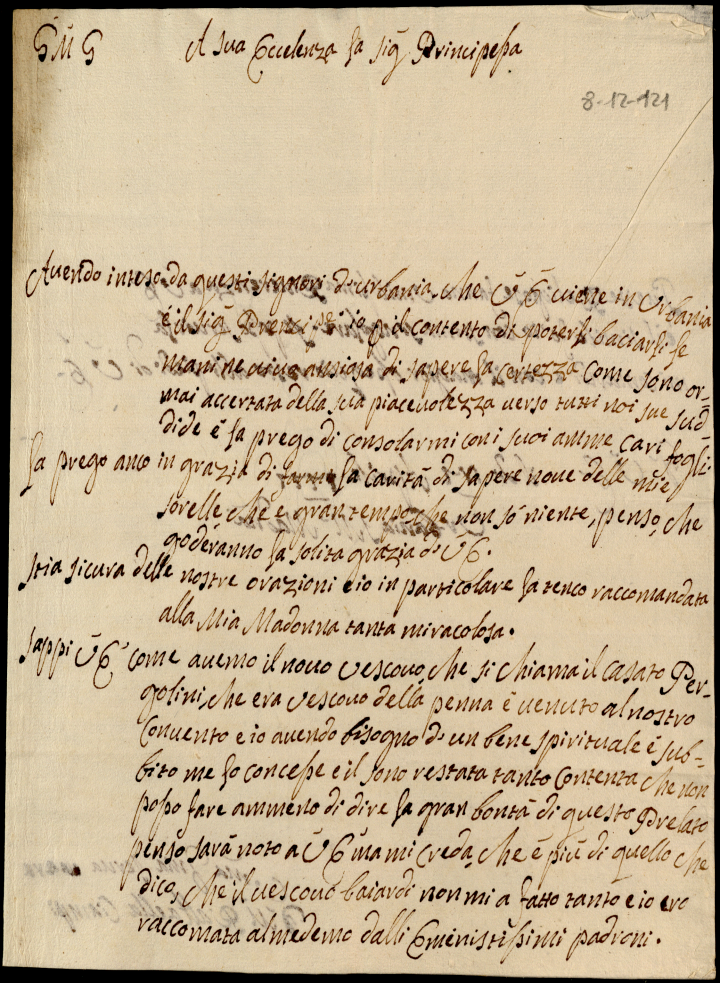 G M G A sua Eccelenza la sig Principessa
8-12-121
Avendo inteso da questi signori d'urbania, che V E viene in Urbania
e il sig Prencipe io p il contento di poterli baciarli le
mani ne vivo ansiosa di sapere la certezza come sono or-
mai accertata della sua piacevolezza verso tutti noi sue sud-
dide e la prego di consolarmi con i suoi amme cari fogli
la prego anco in grazia di la carità di sapere nove delle mie
sorelle che è gran tempo che non sò niente, penso, che
goderanno la solita grazia di V E.
stia sicura delle nostre orazioni e io in particolare la tenco raccomandata
alla Mia Madonna tanta miracolosa.
sappi V E come avemo il novo vescovo, che si chiama il casato Per-
golini, che era vescovo della penna è venuto al nostro
Convento e io avendo bisogno d'un bene spirituale è sub-
bito me lo concesse e il sono restata tanto Contenta che non
posso fare ammeno di dire la gran bontà di questo Prelato
penso sarà noto a V E ma mi creda, che è più di quello che
dico, che il vescovo baiardi non mi a fatto tanto e io ero
raccomata al medemo dalli Eminentissimi padroni.